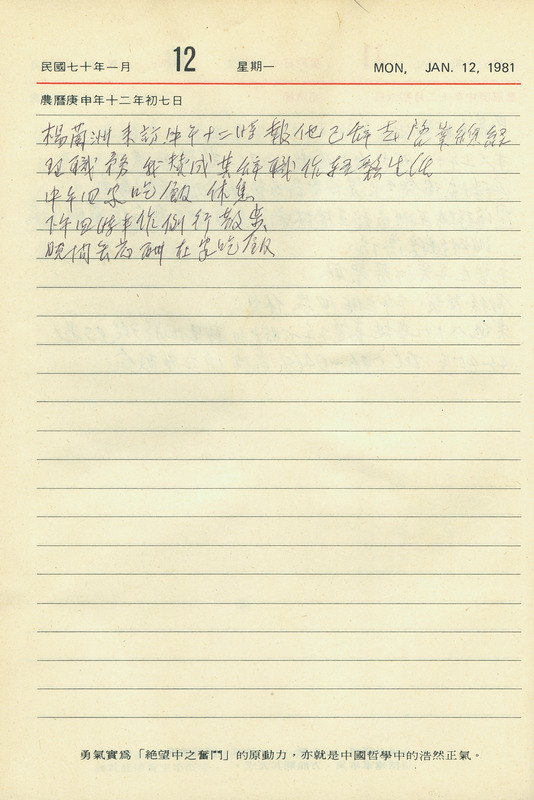 民國七十年一月 12 星期一 MON, JAN. 12, 1981
農曆庚申年十二年初七日
楊蘭洲來訪中午十二時報他已辭去 業總經
理職務 我贊成其辭職作輕鬆生活
中午回家吃飯 休息
下午四時半作例行散步
晚間無應酬在家吃飯
勇氣實爲「絶望中之奮鬥」的原動力,亦就是中國哲學中的浩然正氣。